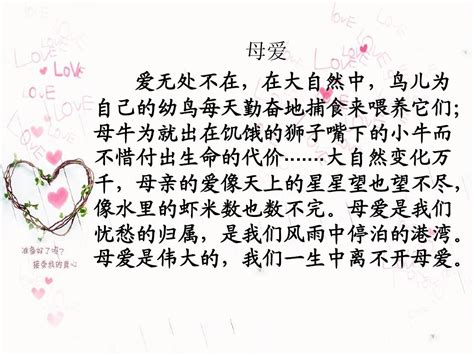 母爱
爱无处不在，在大自然中，鸟儿为
自己的幼鸟每天勤奋地捕食来喂养它们；
母牛为就出在饥饿的狮子嘴下的小牛而
不惜付出生命的代价……大自然变化万
千，母亲的爱像天上的星星望也望不尽，
像水里的虾米数也数不完。母爱是我们
忧愁的归属，是我们风雨中停泊的港湾。
母爱是伟大的，我们一生中离不开母爱。
准备好了吗?
接受我的真心
LOVE
LOVE
LOVE